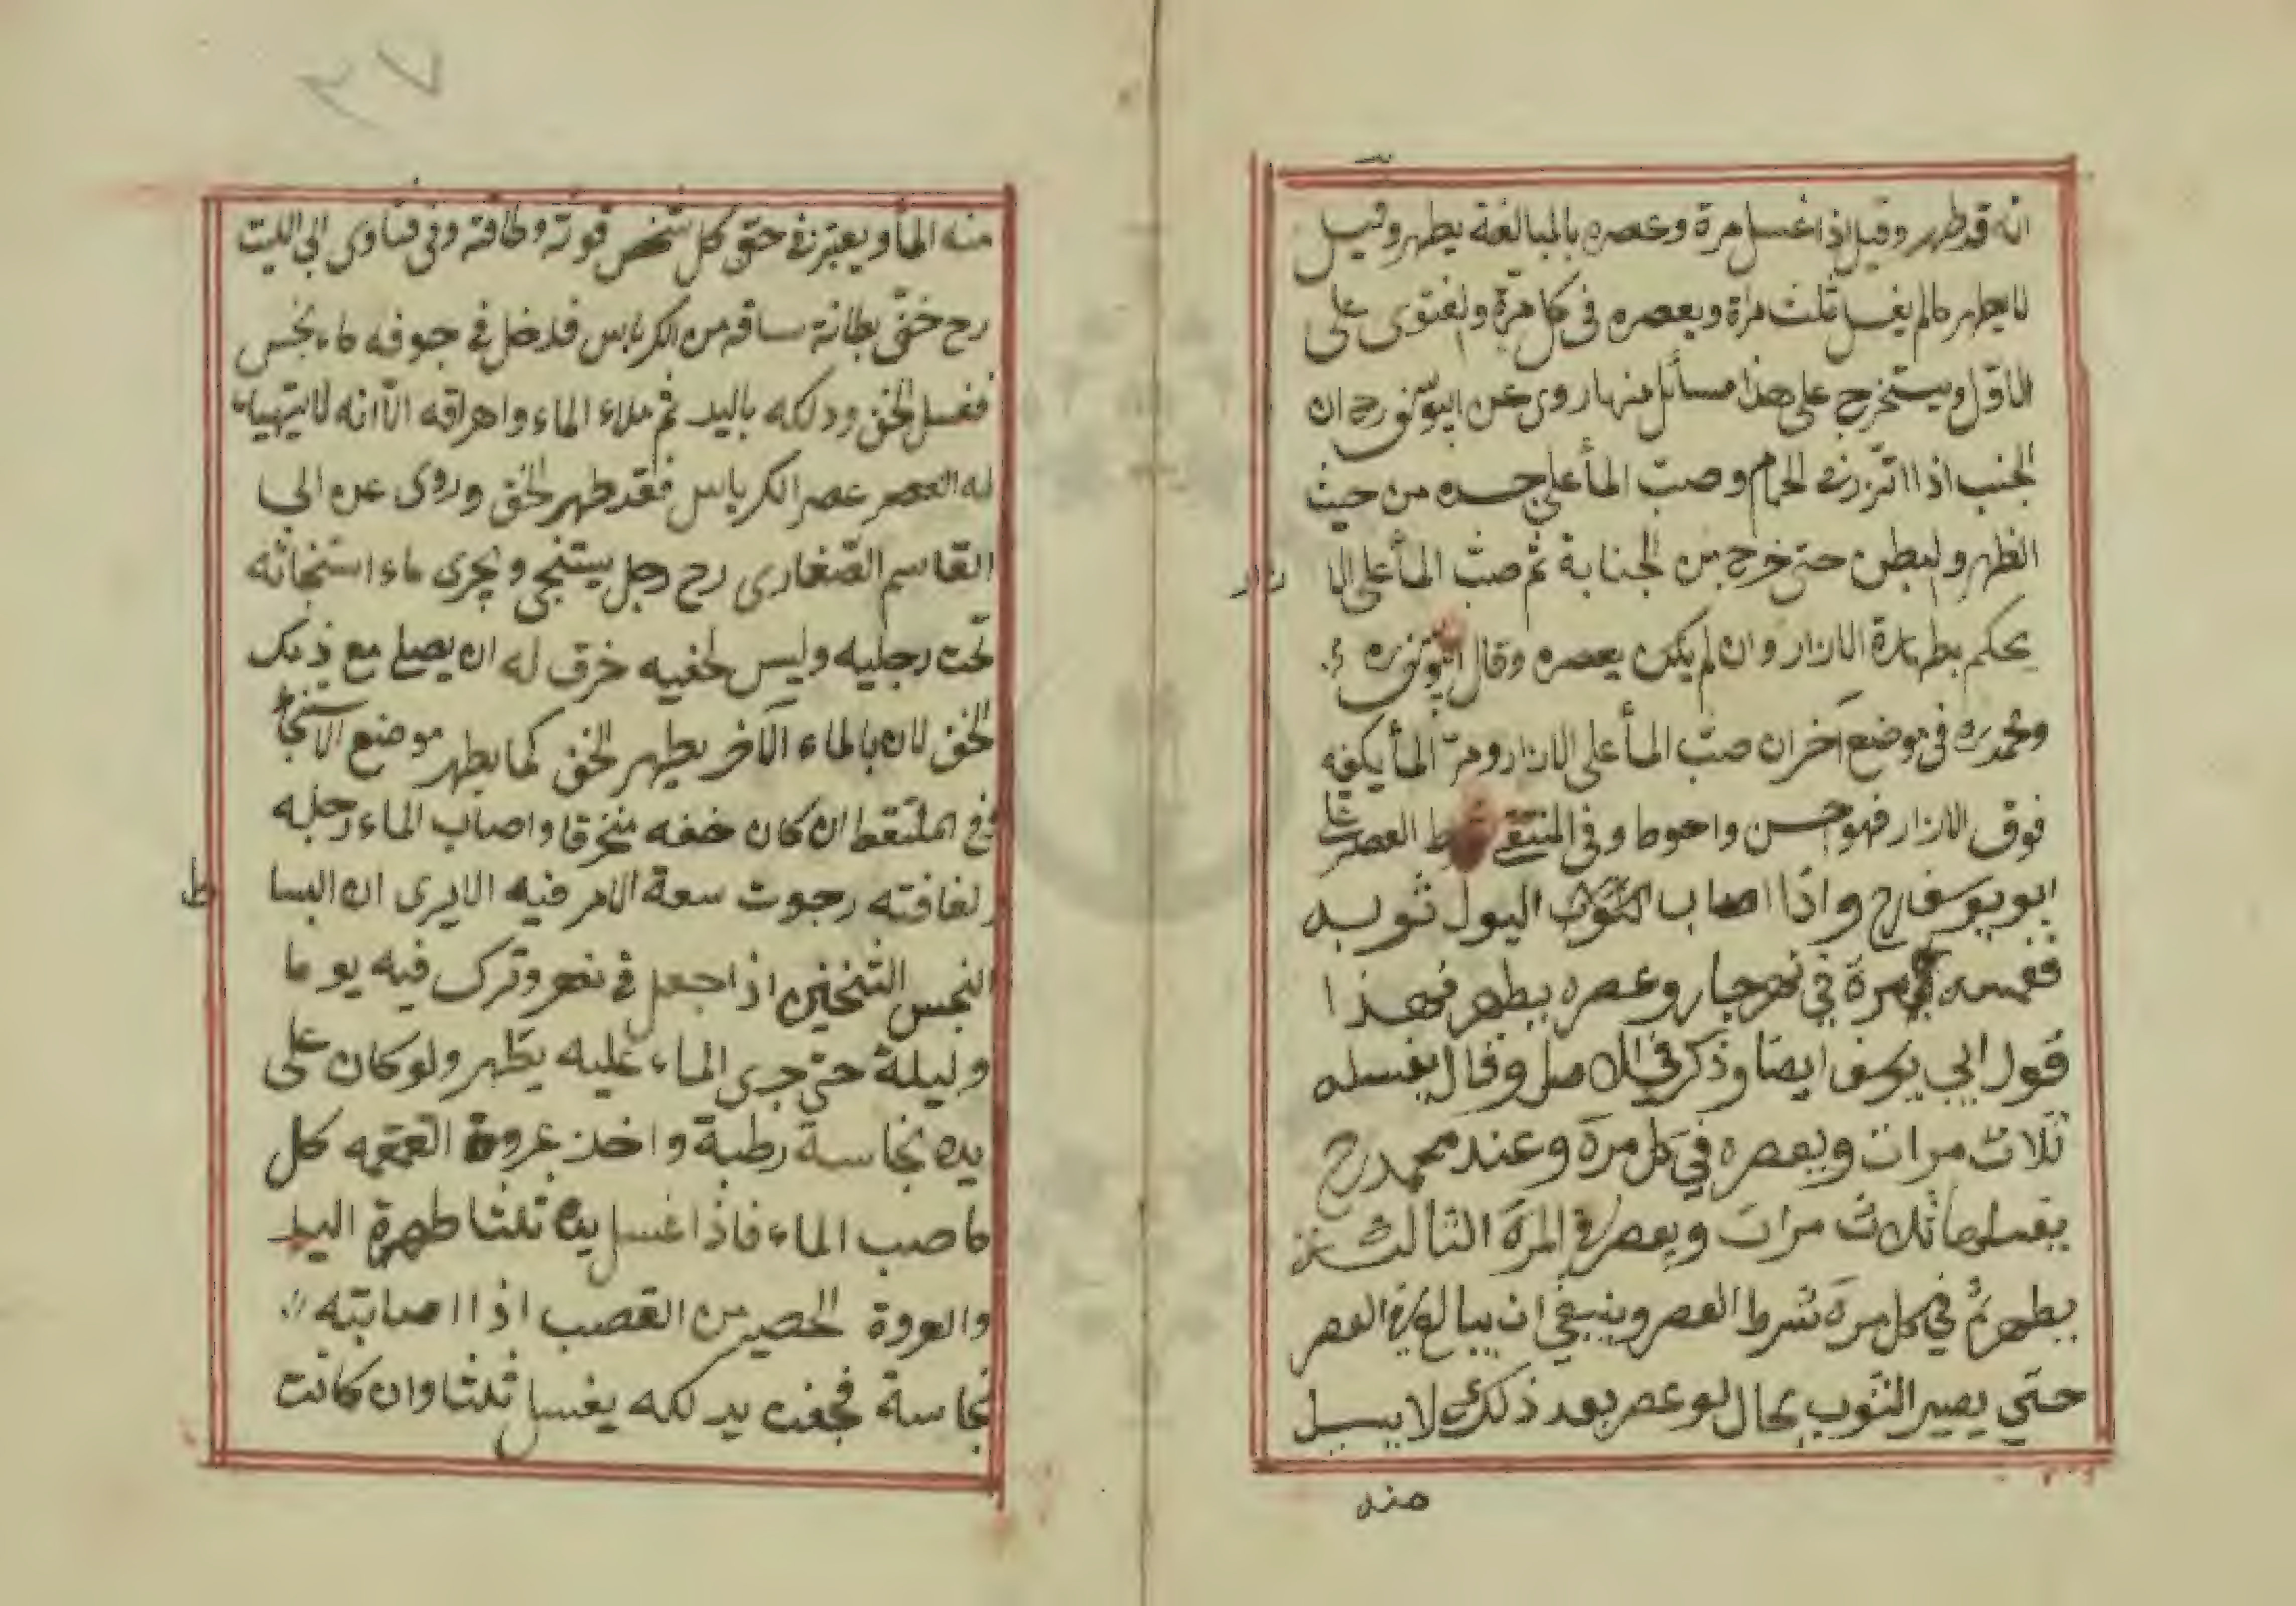 انه قد طهر وقيل اذا غسل مرة وعصره بالمبالغة يطهر وقيل
لا يطهر مالم يغسل ثلث مراة ويعصره فى كل مرة والفتوى على
الاول ويستخرج على هذا مسائل منها روى عن ابيوسف رح ان
الجنب اذا اتزر فى الحمام وصب الماء على جسده من حيث
الظهر والبطن حتى خرج من الجنابة ثم صب الماء على الا زار
يحكم بطهارة الازار وان لم يكن يعصره وقال ابيوسف ره
ومحمد ره فى موضع آخر ان صب الماء على الازار ومر الماء بكفه
فوق الازار فهو احسن واحوط وفى المنتقى شرط العصر
ابو يوسف رح واذا اصاب البول ثوبه
فغمسه مرة في نهر جار وعصره يطهر فهذا
قول ابي يوسف ايضا وذكر في الاصل وقال يغسله
ثلاث مرات ويعصره في كل مرة وعند محمد رح
يغسلها ثلاث مرات ويعصر فى المرة الثالثة
يطهر ثم في كل مرة شرط العصر وينبغي ان يبالغ فى العصر
حتي يصير الثوب بحال لو عصر بعد ذلك لا يسيل
منه
٧٣
منه الماء ويعتبر فى حق كل شخص قوته وطاقته وفى فتاوى ابى الليث
رح خف بطانة ساقه من الكرباس فدخل فى جوفه ماء نجس
فغسل الخف ودلكه باليد ثم ملاء الماء واهراقه الا انه لا يتهياء
له العصر عصر الكرباس فقد طهر الخف وروى عن ابي
القاسم الصفارى رح رجل يستنجى ويجرى ماء استنجائه
تحت رجليه وليس لخفيه خرق له ان يصلى مع ذلك
الخف لان بالماء الآخر يطهر الخف كما يطهر موضع الاستنجاء
وفى الملتقط ان كان خفه منخرقا واصاب الماء رجله
ولفافته رجوت سعة الامر فيه الا يرى ان البسا ط
النجس الثخين اذا جعل فى نهر وترك فيه يوما
وليلة حتى جرى الماء عليه يطهر ولو كان على
يده نجاسة رطبة واخذ عروة القمقمه كل
ما صب الماء فاذا غسل يده ثلثا طهرة اليد
والعروة الحصير من القصب اذا اصابته
نجاسة فجفت يدلكه يغسل ثلثا وان كانت